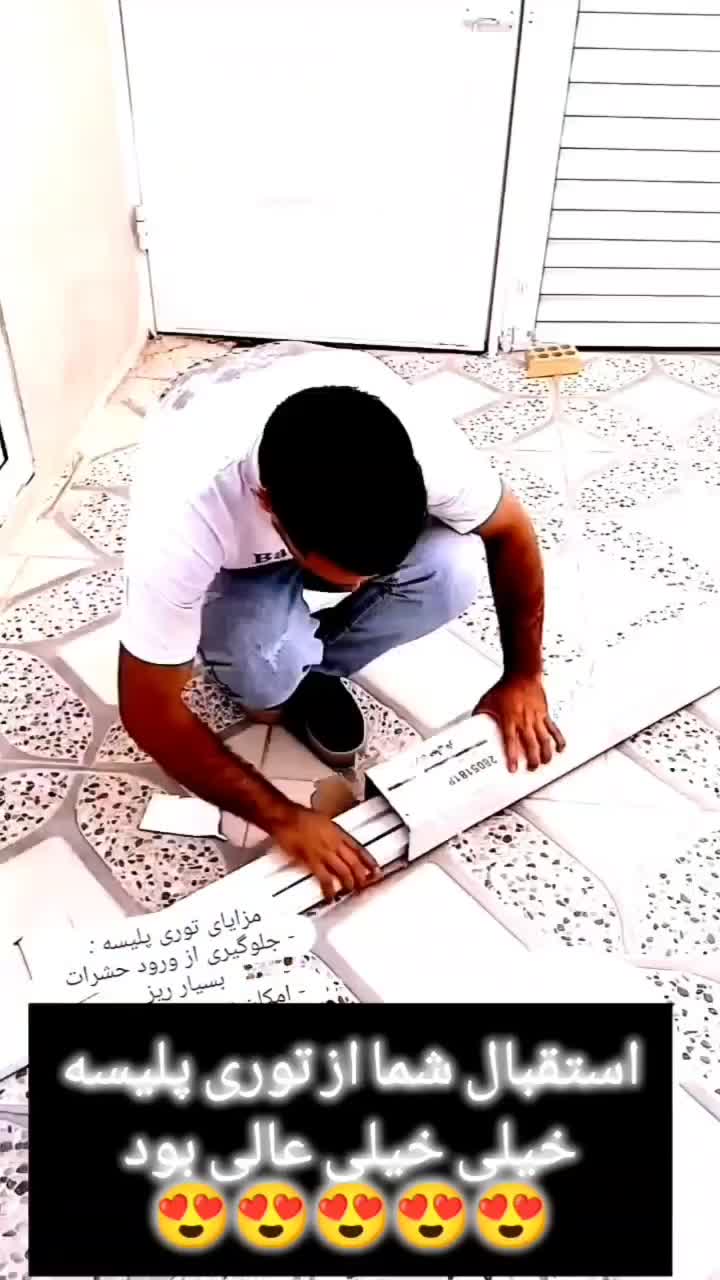 Ba
280S181P
مزایای توری پلیسه :
- جلوگیری از ورود حشرات
بسیار ریز
استقبال شما از توری پلیسه
خیلی خیلی عالی بود
😍😍😍😍😍